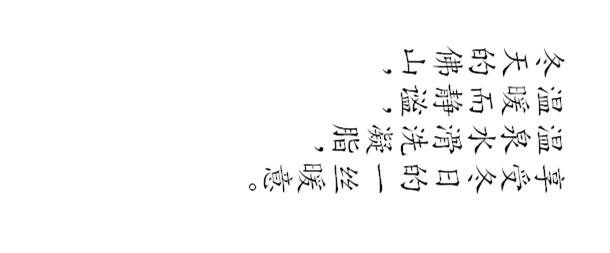 冬天的佛山，
温暖而静谧，
温泉水滑洗凝脂，
享受冬日的一丝暖意。